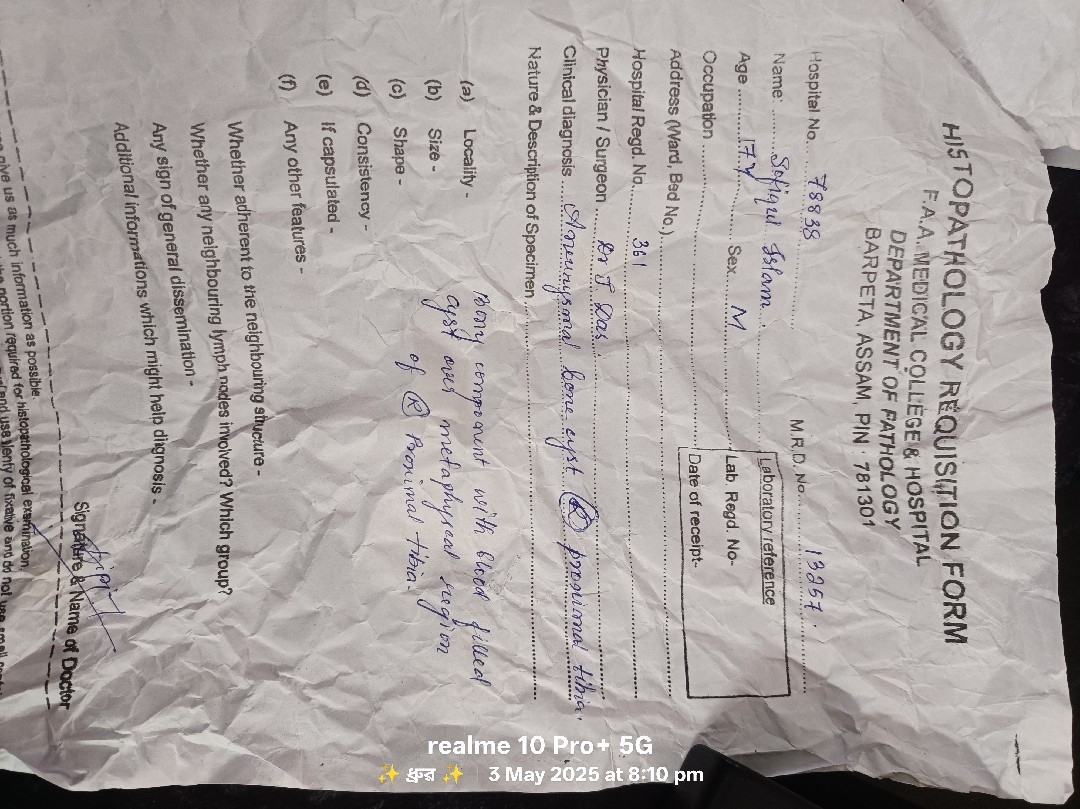 HISTOPATHOLOGY REQUISITION FORM
F.A.A. MEDICAL COLLEGE & HOSPITAL
DEPARTMENT OF PATHOLOGY
BARPETA, ASSAM, PIN - 781301
Hospital No. 78838 M.R.D. No. 13257.
Name: Sofiqul Islam.
Laboratory reference
Age 17 y Sex. M
Lab. Regd. No-
Occupation
Date of receipt-
Address (Ward, Bed No.)
Hospital Regd. No. 361
Physician / Surgeon Dr J Das.
Clinical diagnosis Aneurysmal bone cyst (R) proximal tibia.
Nature & Description of Specimen
(a) Locality - Bony component with blood filled
(b) Size - cyst over metaphyseal region
(c) Shape - of (R) Proximal tibia.
(d) Consistency -
(e) If capsulated -
(f) Any other features -
Whether adherent to the neighbouring structure -
Whether any neighbouring lymph nodes involved? Which group?
Any sign of general dissemination -
Additional informations which might help diagnosis -
Signature & Name of Doctor
give us as much information as possible.
the portion required for histopathological examination,
and use plenty of fixative and do not use small
realme 10 Pro+ 5G
✨ ধ্রুব ✨ 3 May 2025 at 8:10 pm